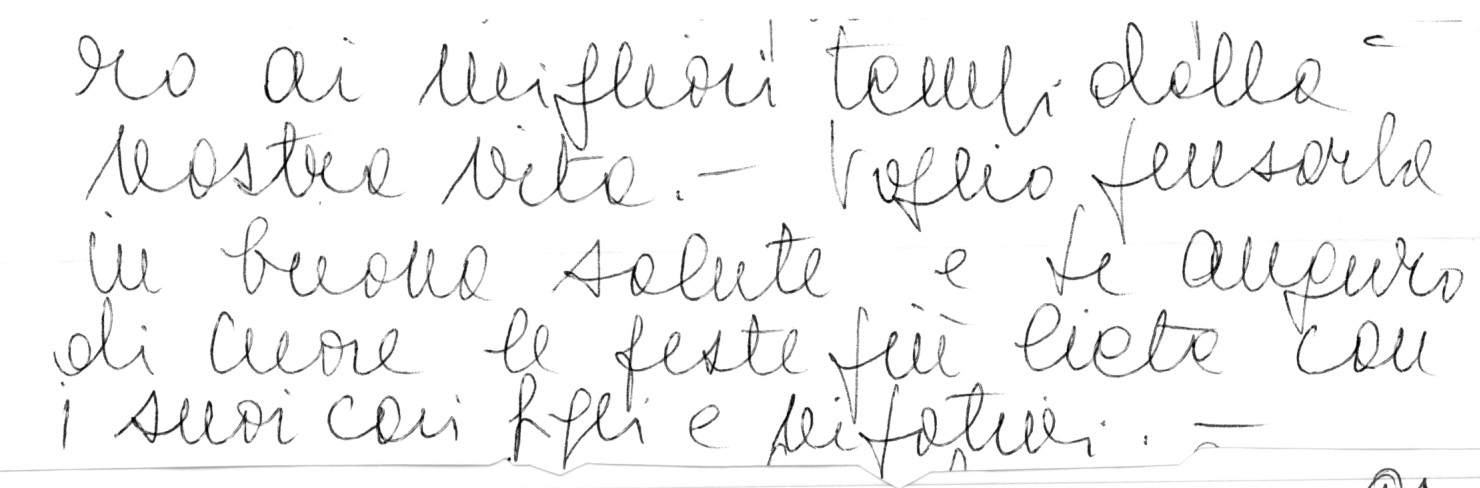 ro ai migliori tempi della
nostra vita. - Voglio pensarla
in buona salute e Le auguro
di cuore le feste più liete con
i suoi cari figli e nipotini. -